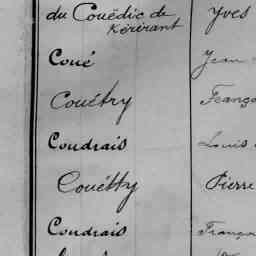 du Couëdic de Yves
Kérérant
Coué Jean
Couétry França
Coudrais Louis
Couëtty Pierre
Coudrais França